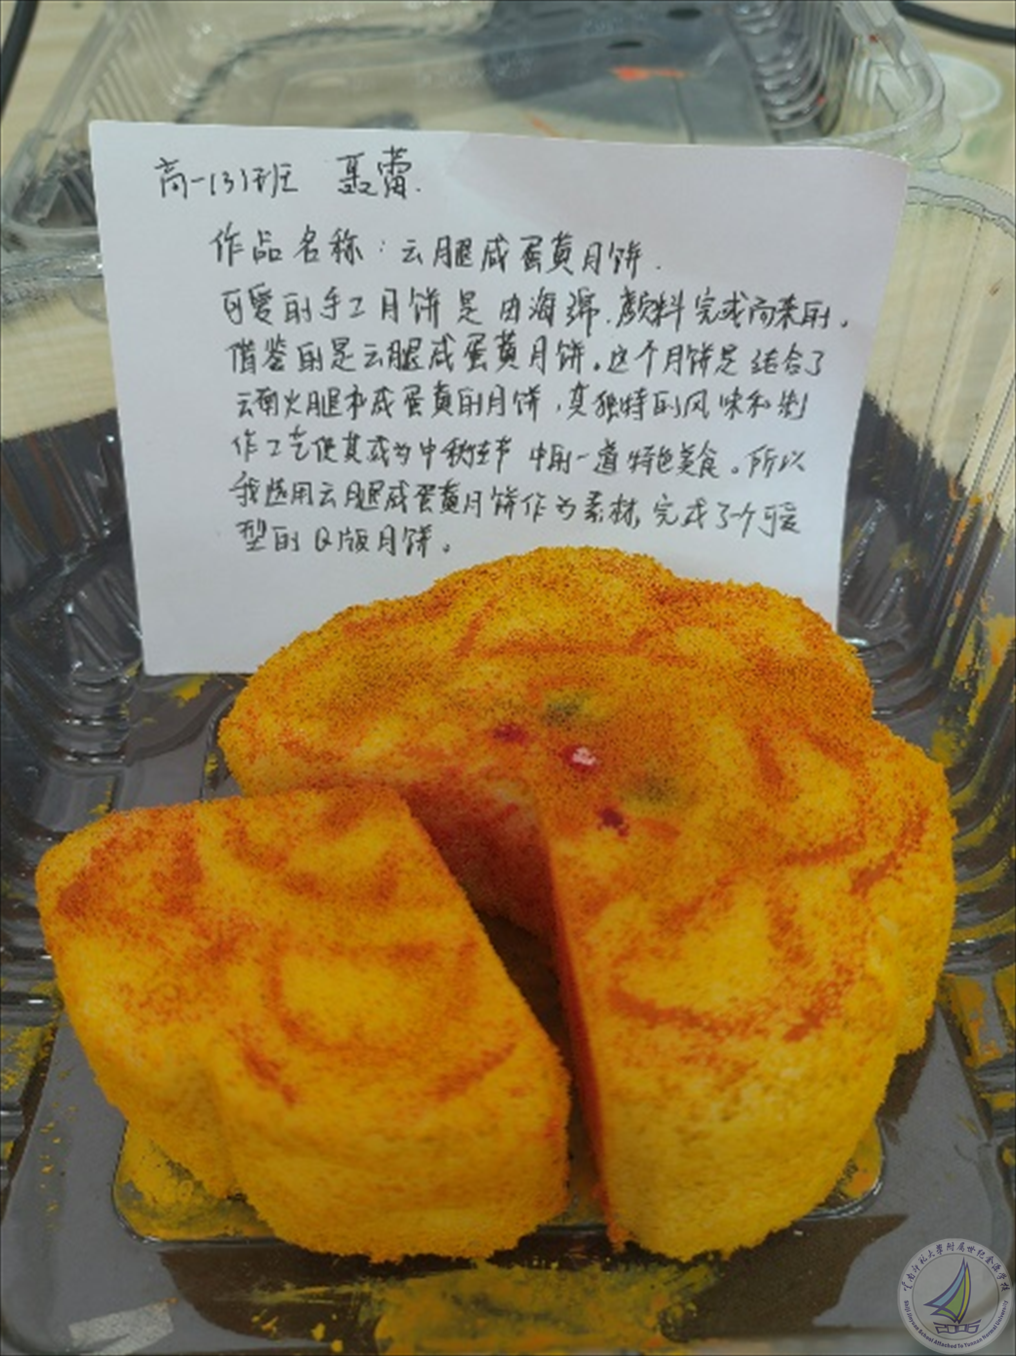 高一(3)班 聂蕾.
作品名称：云腿咸蛋黄月饼.
可爱的手工月饼是由海绵.颜料完成而来的。
借鉴的是云腿咸蛋黄月饼。这个月饼是结合了
云南火腿和咸蛋黄的月饼，其独特的风味和制
作工艺使其成为中秋佳节中的一道特色美食。所以
我选用云腿咸蛋黄月饼作为素材，完成了个可爱
型的Q版月饼。
云南师范大学附属世纪金源学校